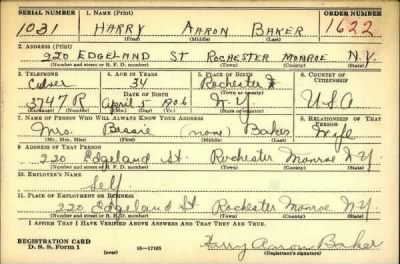 SERIAL NUMBER 1. NAME (Print) ORDER NUMBER
1031 HARRY AARON BAKER 1622
(First) (Middle) (Last)
2. ADDRESS (Print)
220 EDGELAND ST ROCHESTER MONROE N.Y.
(Number and street or R. F. D. number) (Town) (County) (State)
3. TELEPHONE 4. AGE IN YEARS 5. PLACE OF BIRTH 6. COUNTRY OF CITIZENSHIP
Culver 34 Rochester
DATE OF BIRTH (Town or county)
3747 R April 5 1906 N.Y. USA
(Exchange) (Number) (Mo.) (Day) (Yr.) (State or country)
7. NAME OF PERSON WHO WILL ALWAYS KNOW YOUR ADDRESS 8. RELATIONSHIP OF THAT PERSON
Mrs. Bessie (none) Baker Wife
(Mr., Mrs., Miss) (First) (Middle) (Last)
9. ADDRESS OF THAT PERSON
220 Edgeland St. Rochester Monroe NY
(Number and street or R. F. D. number) (Town) (County) (State)
10. EMPLOYER'S NAME
Self
11. PLACE OF EMPLOYMENT OR BUSINESS
220 Edgeland St Rochester Monroe NY
(Number and street or R. F. D. number) (Town) (County) (State)
I AFFIRM THAT I HAVE VERIFIED ABOVE ANSWERS AND THAT THEY ARE TRUE.
REGISTRATION CARD
D. S. S. Form 1 (over) 16—17105 Harry Aaron Baker
(Registrant's signature)